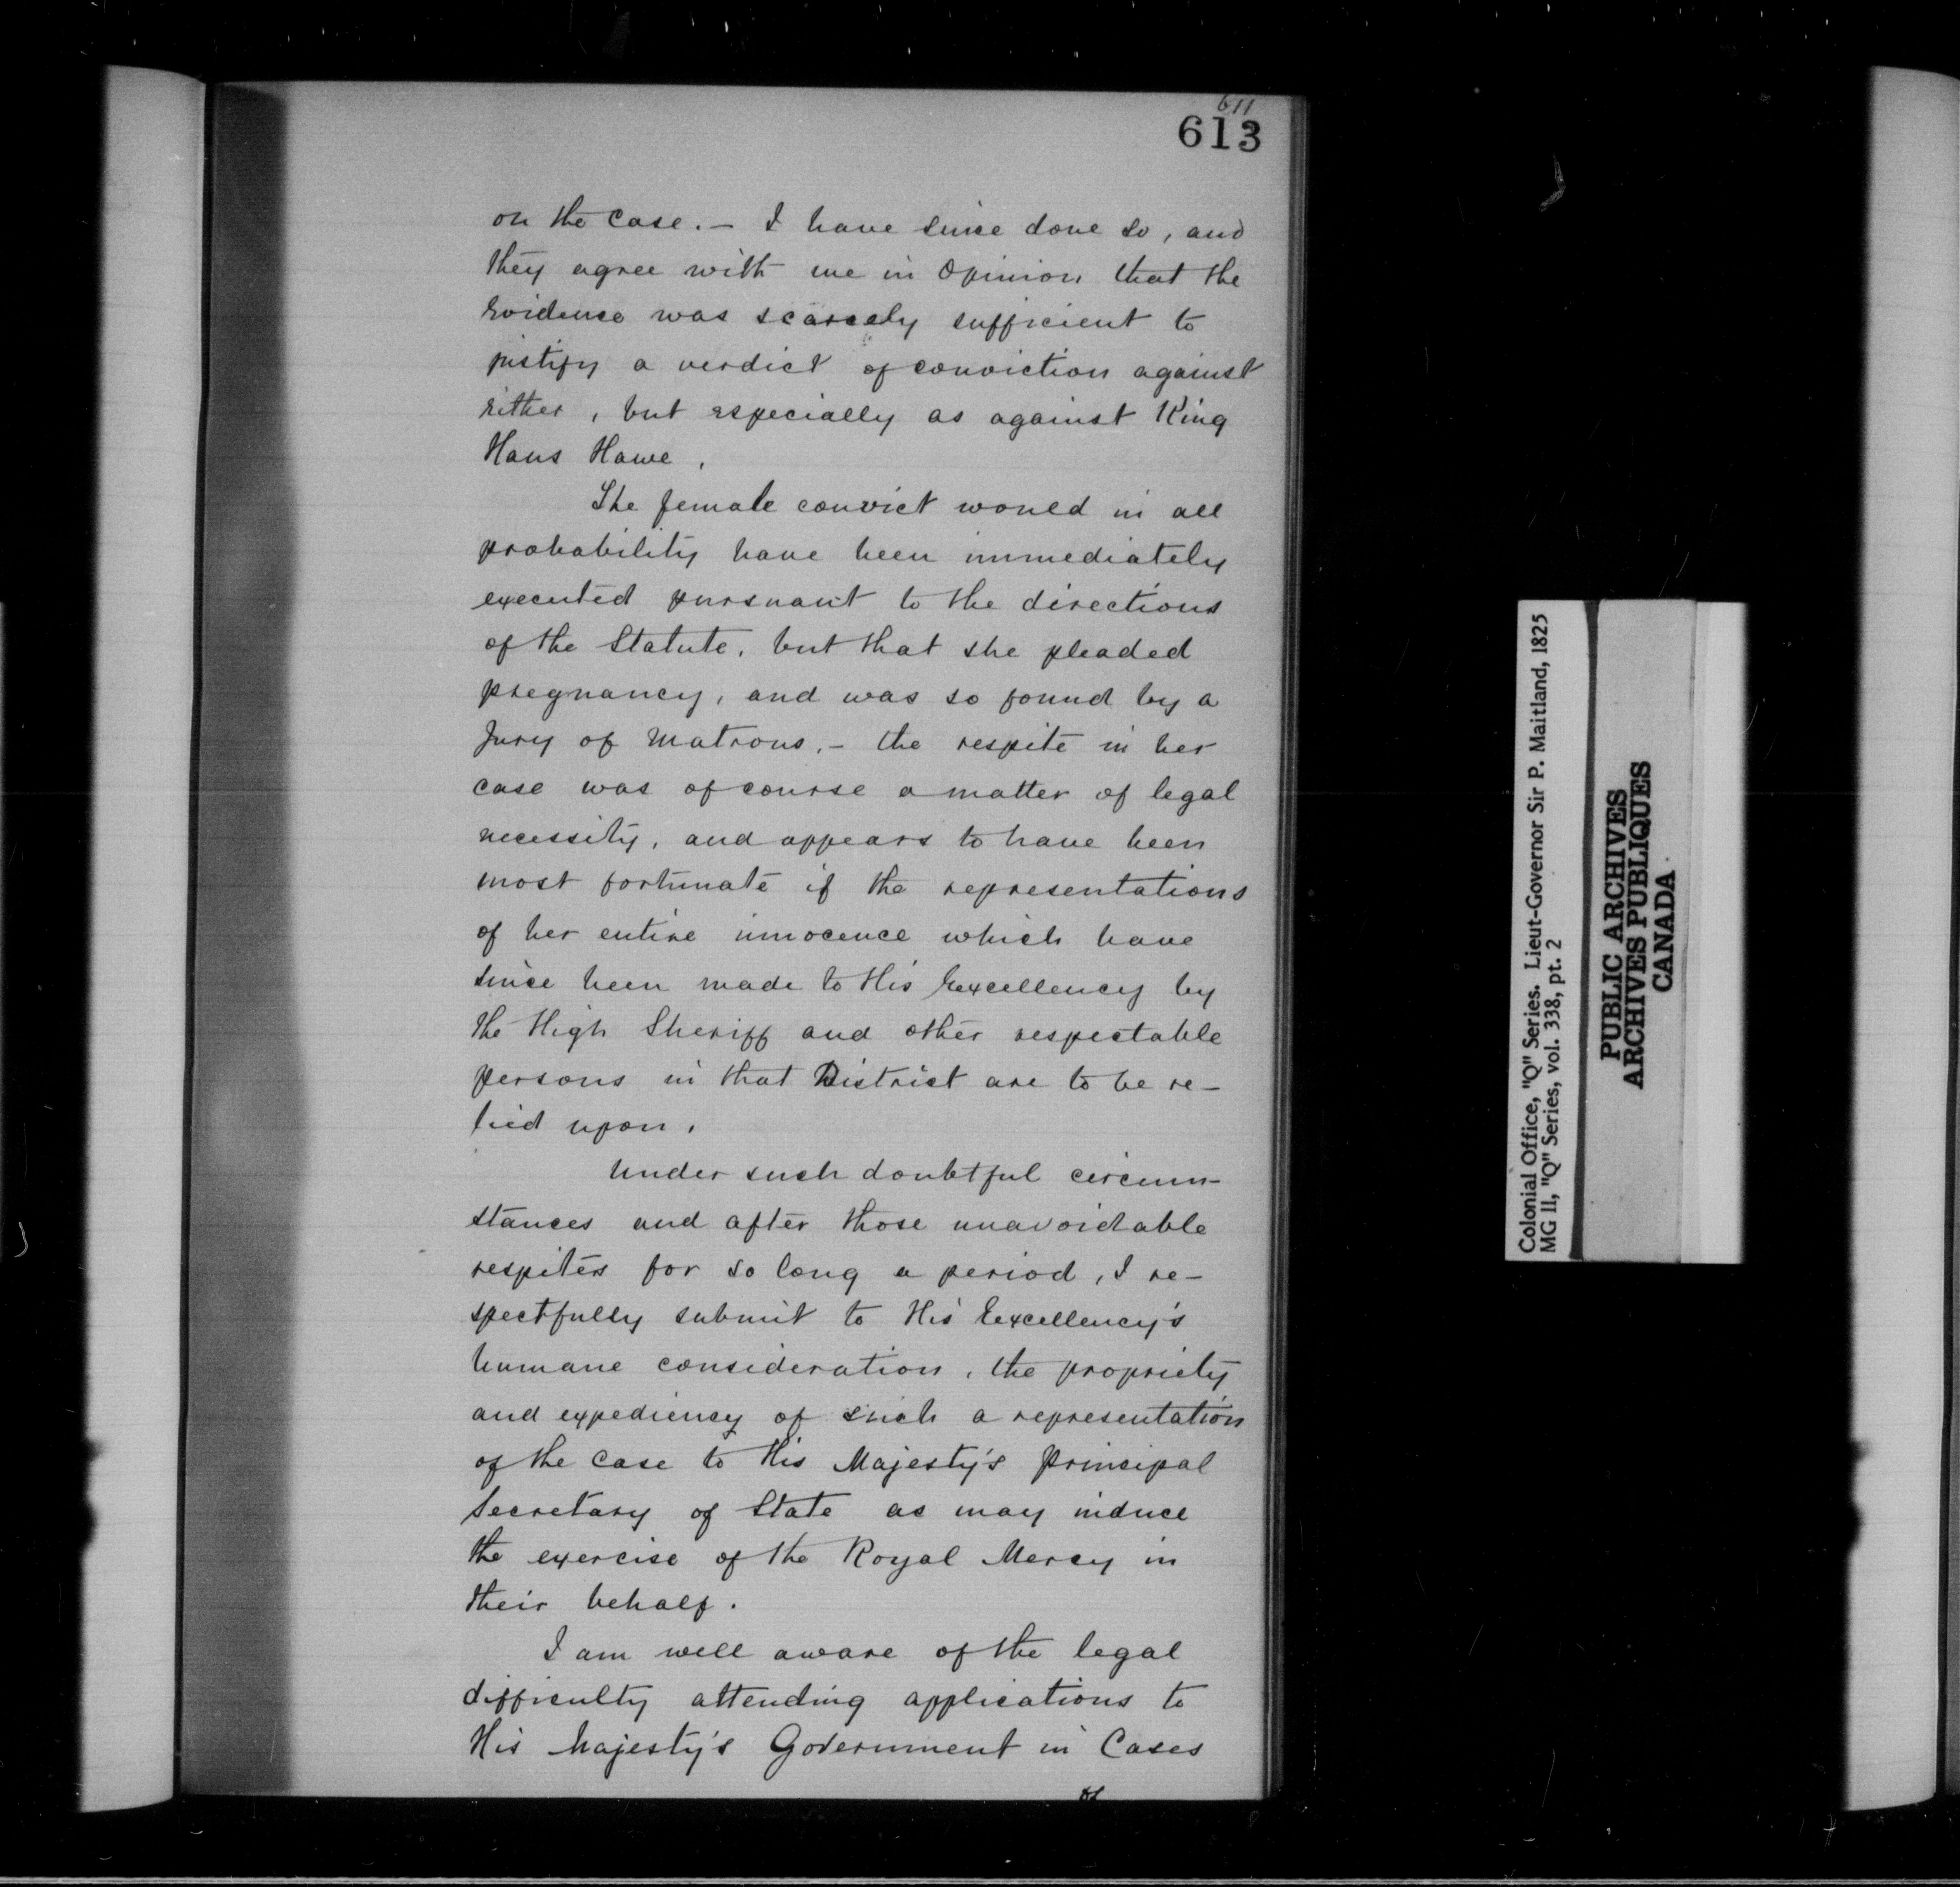 611
613
on the case. — I have since done so, and
they agree with me in opinion that the
evidence was scarcely sufficient to
justify a verdict of conviction against
either, but especially as against King
Hans Hawe.
The female convict would in all
probability have been immediately
executed pursuant to the directions
of the Statute, but that she pleaded
pregnancy, and was so found by a
Jury of Matrons. — the respite in her
case was of course a matter of legal
necessity, and appears to have been
most fortunate if the representations
of her entire innocence which have
since been made to His Excellency by
the High Sheriff and other respectable
persons in that District are to be re-
lied upon.
Under such doubtful circum-
stances and after those unavoidable
respites for so long a period, I re-
spectfully submit to His Excellency's
humane consideration, the propriety
and expediency of such a representation
of the case to His Majesty's Principal
Secretary of State as may induce
the exercise of the Royal Mercy in
their behalf.
I am well aware of the legal
difficulty attending applications to
His Majesty's Government in Cases
of
Colonial Office, "Q" Series. Lieut-Governor Sir P. Maitland, 1825
MG 11, "Q" Series, vol. 338, pt. 2
PUBLIC ARCHIVES
ARCHIVES PUBLIQUES
CANADA